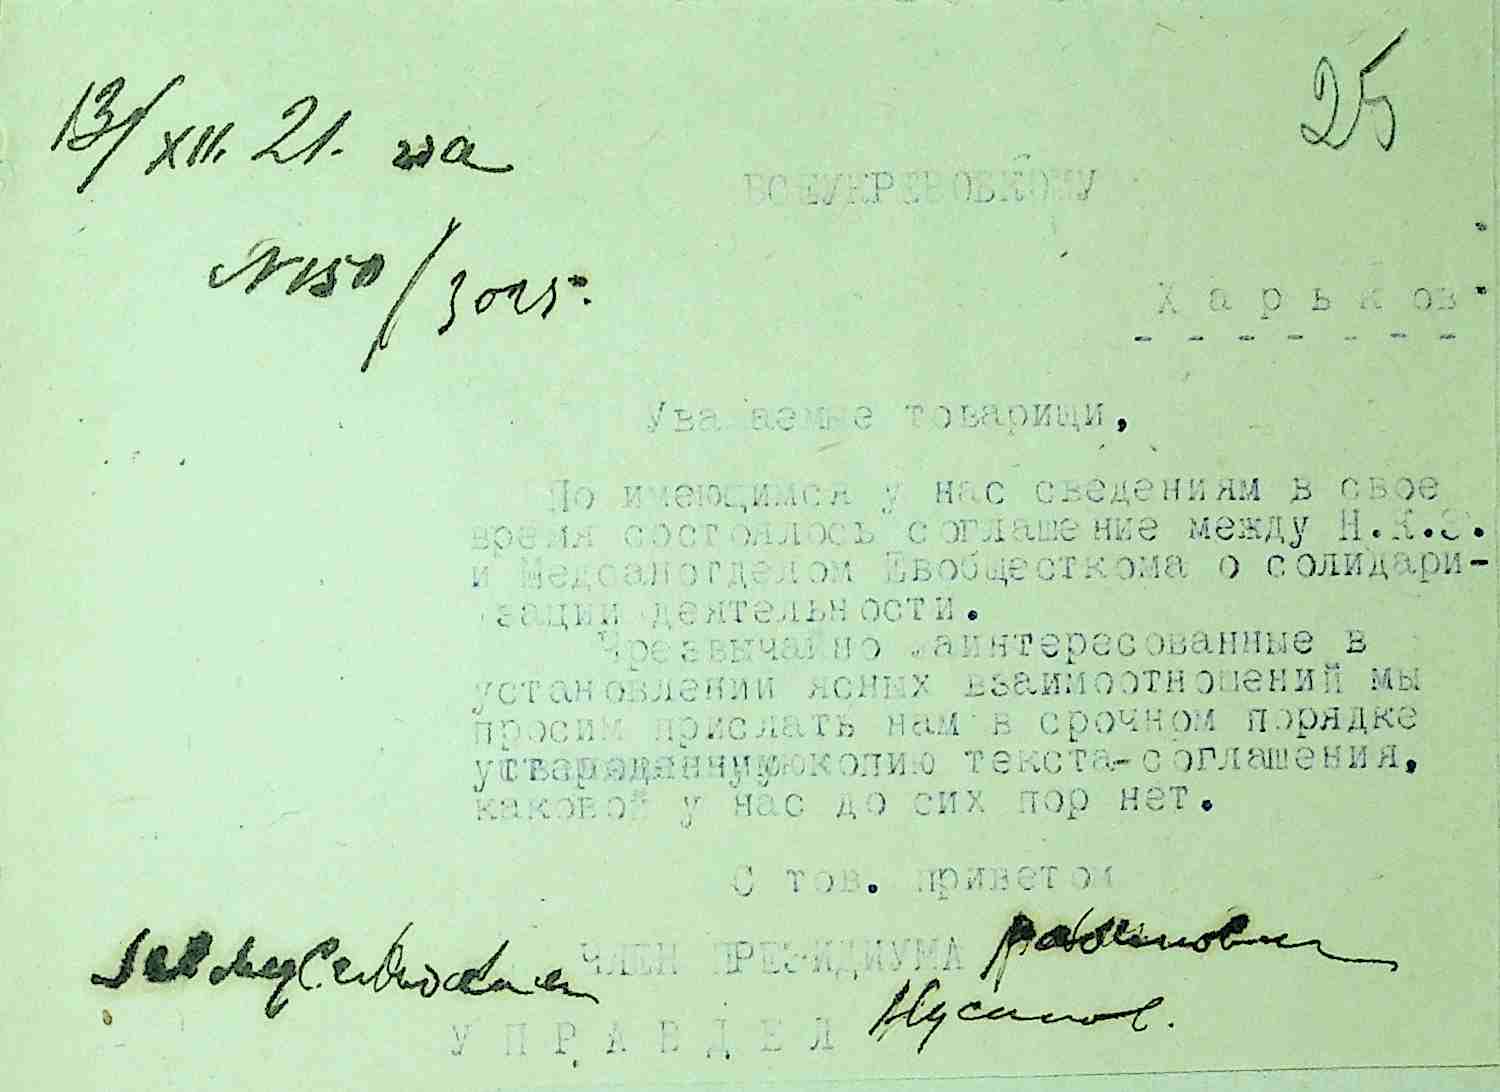 25
13/XII. 21. на
№150/3025.
ВСЕУКРЕВОБКОМУ
Харьков.
Уважаемые товарищи,
По имеющимся у нас сведениям в свое
время состоялось соглашение между Н.К.З.
и Медсанотделом Евобщесткома о солидари-
зации деятельности.
Чрезвычайно заинтересованные в
установлении ясных взаимоотношений мы
просим прислать нам в срочном порядке
копию текста-соглашения,
каковой у нас до сих пор нет.
С тов. приветом
ЧЛЕН ПРЕЗИДИУМА Рабинович
УПРАВДЕЛ Нусинов.